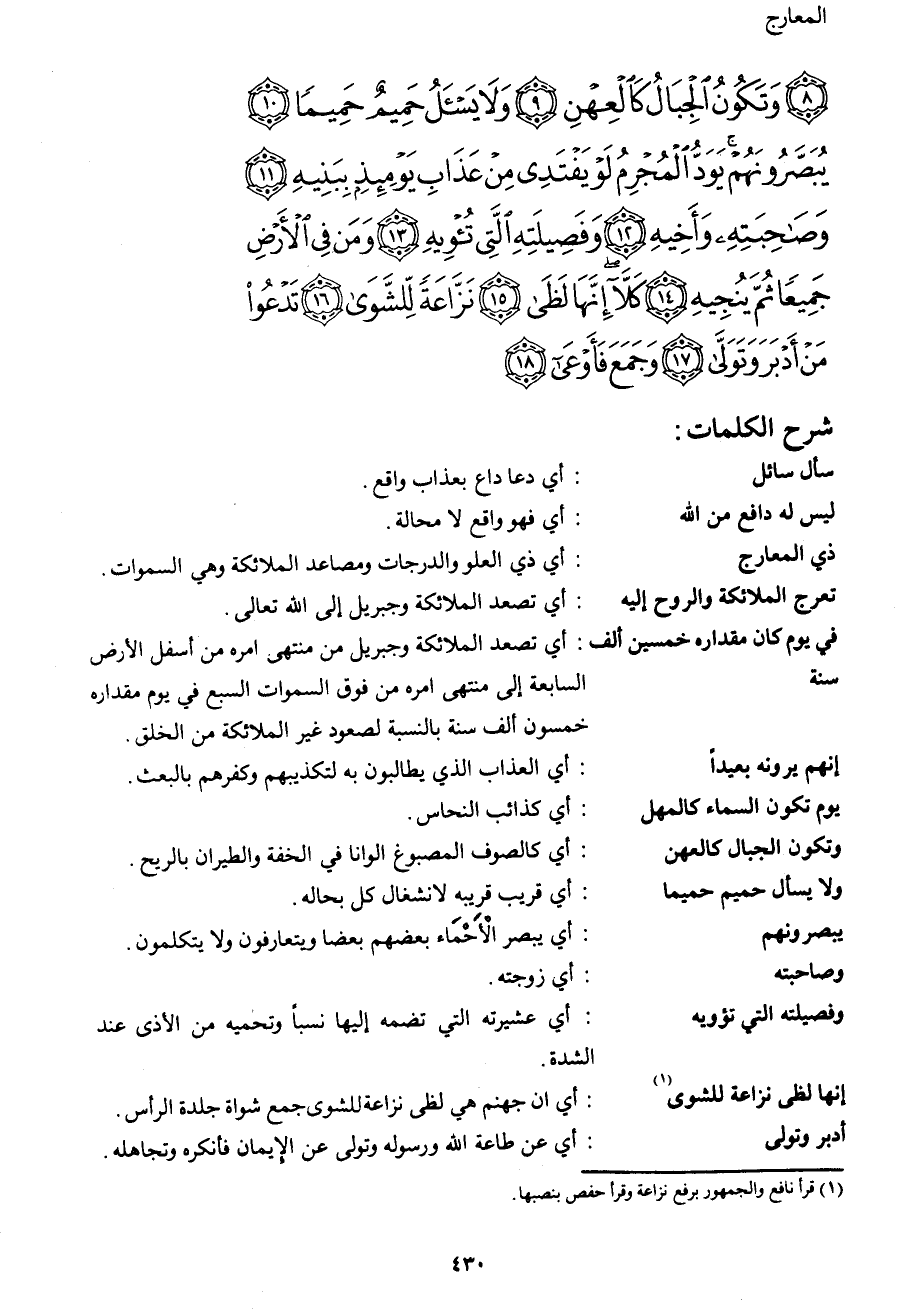 المعارج
﴿٨﴾ وَتَكُونُ ٱلْجِبَالُ كَٱلْعِهْنِ ﴿٩﴾ وَلَا يَسْـَٔلُ حَمِيمٌ حَمِيمًا ﴿١٠﴾
يُبَصَّرُونَهُمْ ۚ يَوَدُّ ٱلْمُجْرِمُ لَوْ يَفْتَدِى مِنْ عَذَابِ يَوْمِئِذٍۭ بِبَنِيهِ ﴿١١﴾
وَصَـٰحِبَتِهِۦ وَأَخِيهِ ﴿١٢﴾ وَفَصِيلَتِهِ ٱلَّتِى تُـْٔوِيهِ ﴿١٣﴾ وَمَن فِى ٱلْأَرْضِ
جَمِيعًا ثُمَّ يُنجِيهِ ﴿١٤﴾ كَلَّآ ۖ إِنَّهَا لَظَىٰ ﴿١٥﴾ نَزَّاعَةً لِّلشَّوَىٰ ﴿١٦﴾ تَدْعُوا۟
مَنْ أَدْبَرَ وَتَوَلَّىٰ ﴿١٧﴾ وَجَمَعَ فَأَوْعَىٰٓ ﴿١٨﴾
شرح الكلمات :
سأل سائل : أي دعا داع بعذاب واقع .
ليس له دافع من الله : أي فهو واقع لا محالة .
ذي المعارج : أي ذي العلو والدرجات ومصاعد الملائكة وهي السموات .
تعرج الملائكة والروح إليه : أي تصعد الملائكة وجبريل إلى الله تعالى .
في يوم كان مقداره خمسين ألف : أي تصعد الملائكة وجبريل من منتهى امره من أسفل الأرض
سنة السابعة إلى منتهى امره من فوق السموات السبع في يوم مقداره
خمسون ألف سنة بالنسبة لصعود غير الملائكة من الخلق .
إنهم يرونه بعيداً : أي العذاب الذي يطالبون به لتكذيبهم وكفرهم بالبعث .
يوم تكون السماء كالمهل : أي كذائب النحاس .
وتكون الجبال كالعهن : أي كالصوف المصبوغ الوانا في الخفة والطيران بالريح .
ولا يسأل حميم حميما : أي قريب قريبه لانشغال كل بحاله .
يبصرونهم : أي يبصر الْأَحْمَاء بعضهم بعضا ويتعارفون ولا يتكلمون .
وصاحبته : أي زوجته .
وفصيلته التي تؤويه : أي عشيرته التي تضمه إليها نسباً وتحميه من الأذى عند
الشدة .
إنها لظى نزاعة للشوى (١) : أي ان جهنم هي لظى نزاعة للشوى جمع شواة جلدة الرأس .
أدبر وتولى : أي عن طاعة الله ورسوله وتولى عن الإيمان فأنكره وتجاهله .
(١) قرأ نافع والجمهور برفع نزاعة وقرأ حفص بنصبها .
٤٣٠